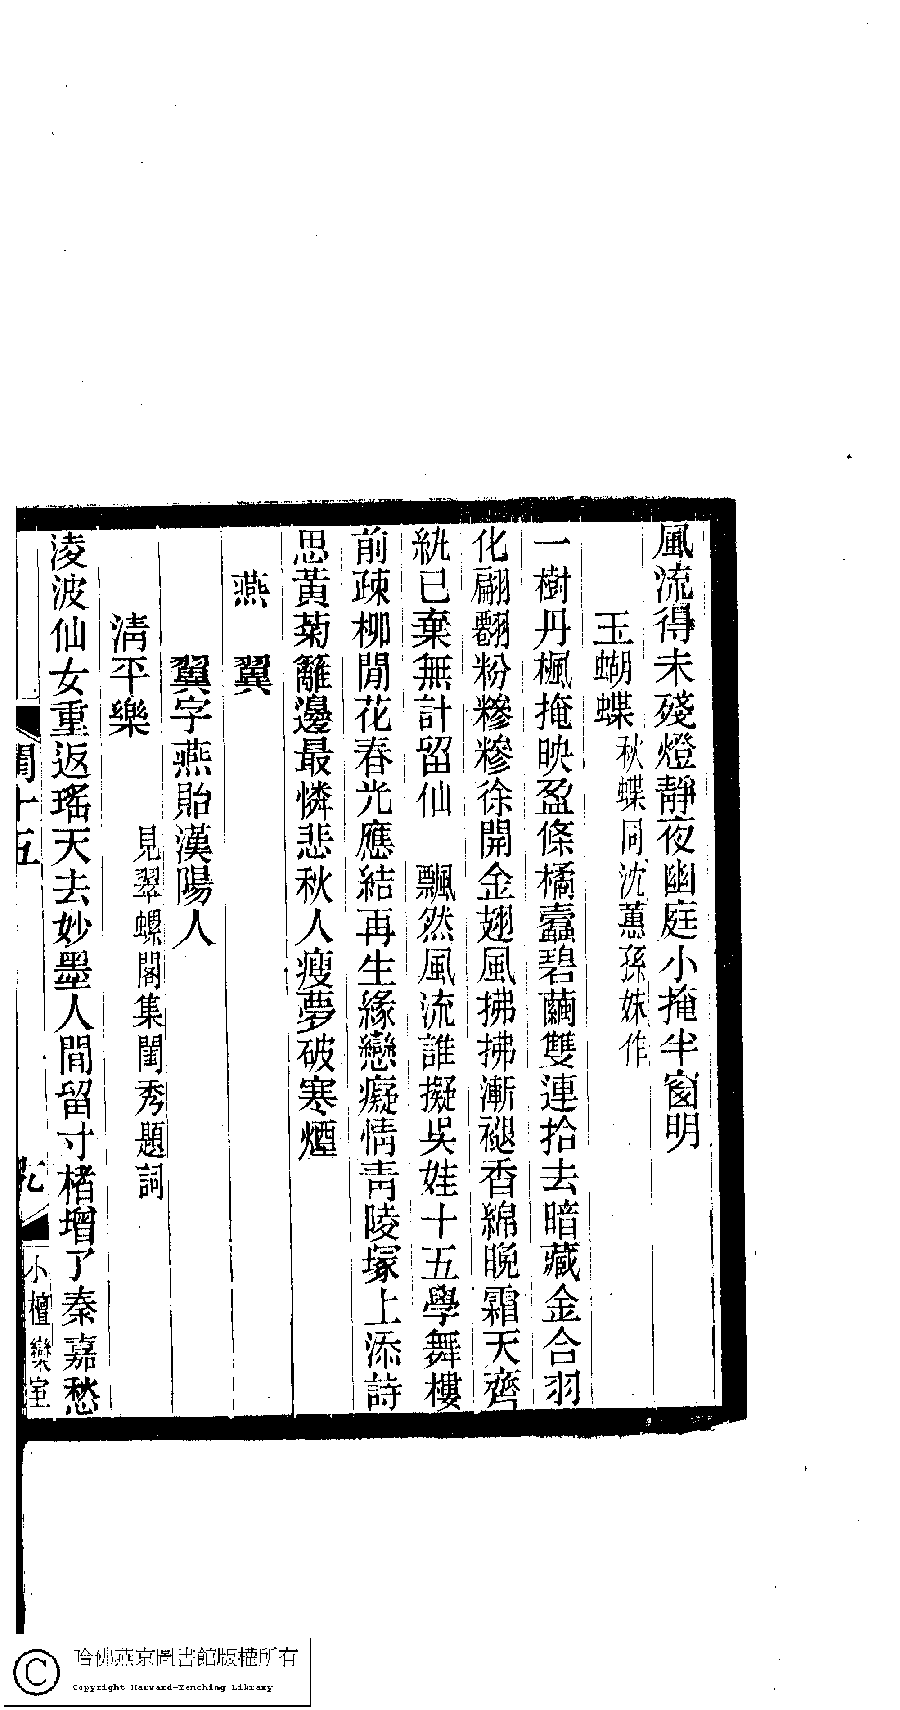 風流得未殘燈靜夜幽庭小掩半窗明
玉蝴蝶 秋蝶同沈蕙孫妹作
一樹丹楓掩映盈條橘蠹碧繭雙連拾去暗藏金合羽
化翩翻粉糝糝徐開金翅風拂拂漸褪香綿晚霜天齊
紈已棄無計留仙 飄然風流誰擬吳娃十五學舞樓
前疎柳閒花春光應結再生緣戀癡情靑陵塚上添詩
思黃菊籬邊最憐悲秋人瘦夢破寒煙
燕翼
翼字燕貽漢陽人
淸平樂 見翠螺閣集閨秀題詞
淩波仙女重返瑤天去妙墨人間留寸楮增了秦嘉愁
閨十五
小檀欒室
哈佛燕京圖書館版權所有
Copyright Harvard-Yenching Library